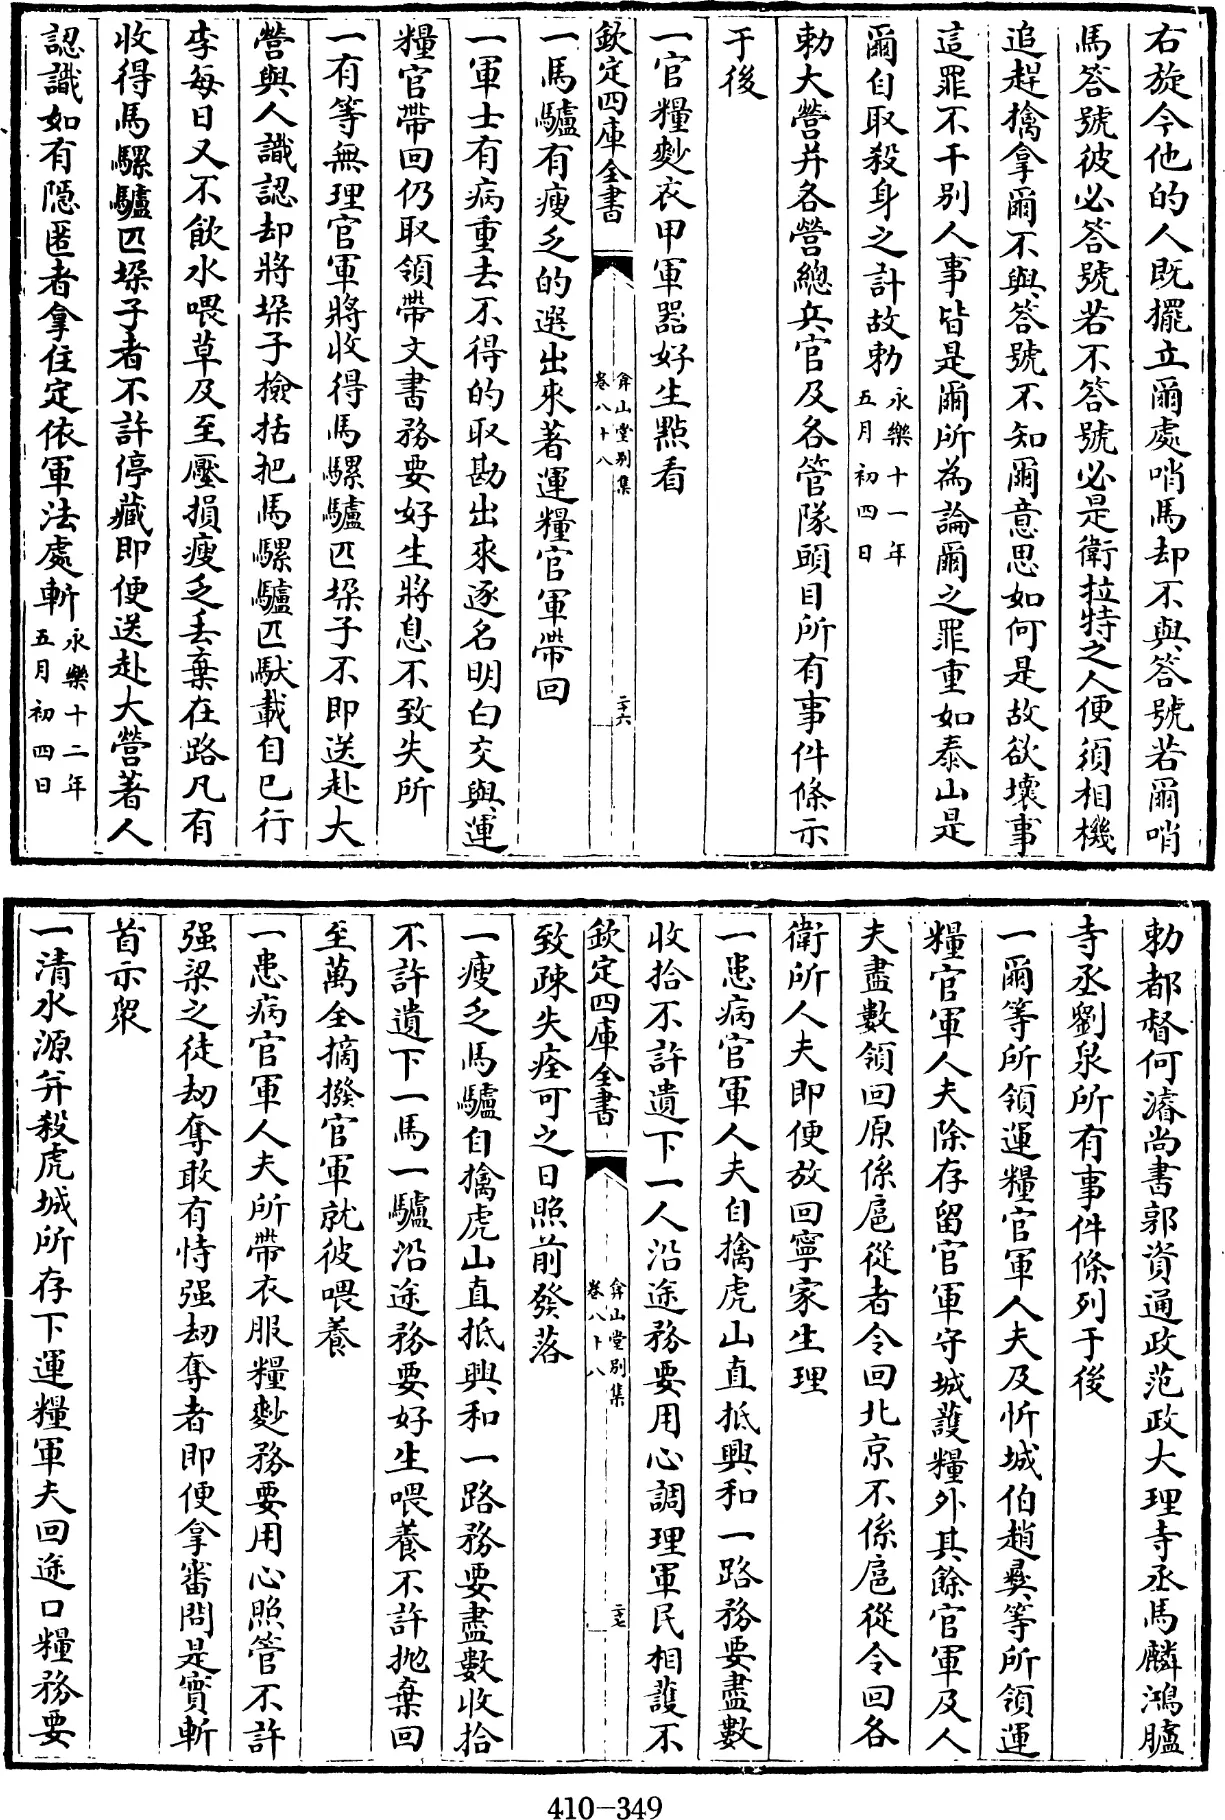 右旋今他的人既擺立爾處哨馬却不與答號若爾哨
馬答號彼必答號若不答號必是衛拉特之人便須相機
追趕擒拿爾不與答號不知爾意思如何是故欲壞事
這罪不干別人事皆是爾所為論爾之罪重如泰山是
爾自取殺身之計故勅永樂十一年五月初四日
勅大營并各營總兵官及各管隊頭目所有事件條示
于後
一官糧麨衣甲軍器好生點看
欽定四庫全書 弇山堂別集卷八十八 二十六
一馬驢有瘦乏的選出來著運糧官軍帶回
一軍士有病重去不得的取勘出來逐名明白交與運
糧官帶回仍取領帶文書務要好生將息不致失所
一有等無理官軍將收得馬騾驢匹垜子不即送赴大
營與人識認却將垜子檢括把馬騾驢匹馱載自己行
李每日又不飲水喂草及至壓損瘦乏丟棄在路凡有
收得馬騾驢匹垜子者不許停藏即便送赴大營著人
認識如有隱匿者拿住定依軍法處斬永樂十二年五月初四日
勅都督何濬尚書郭資通政范政大理寺丞馬麟鴻臚
寺丞劉泉所有事件條列于後
一爾等所領運糧官軍人夫及忻城伯趙彛等所領運
糧官軍人夫除存留官軍守城護糧外其餘官軍及人
夫盡數領回原係扈從者令回北京不係扈從令回各
衛所人夫即便放回寧家生理
一患病官軍人夫自擒虎山直抵興和一路務要盡數
收拾不許遺下一人沿途務要用心調理軍民相護不
欽定四庫全書 弇山堂別集卷八十八 二十七
致疎失痊可之日照前發落
一瘦乏馬驢自擒虎山直抵興和一路務要盡數收拾
不許遺下一馬一驢沿途務要好生喂養不許抛棄回
至萬全摘撥官軍就彼喂養
一患病官軍人夫所帶衣服糧麨務要用心照管不許
强梁之徒刼奪敢有恃强刼奪者即便拿審問是實斬
首示衆
一清水源并殺虎城所存下運糧軍夫回途口糧務要
410-349